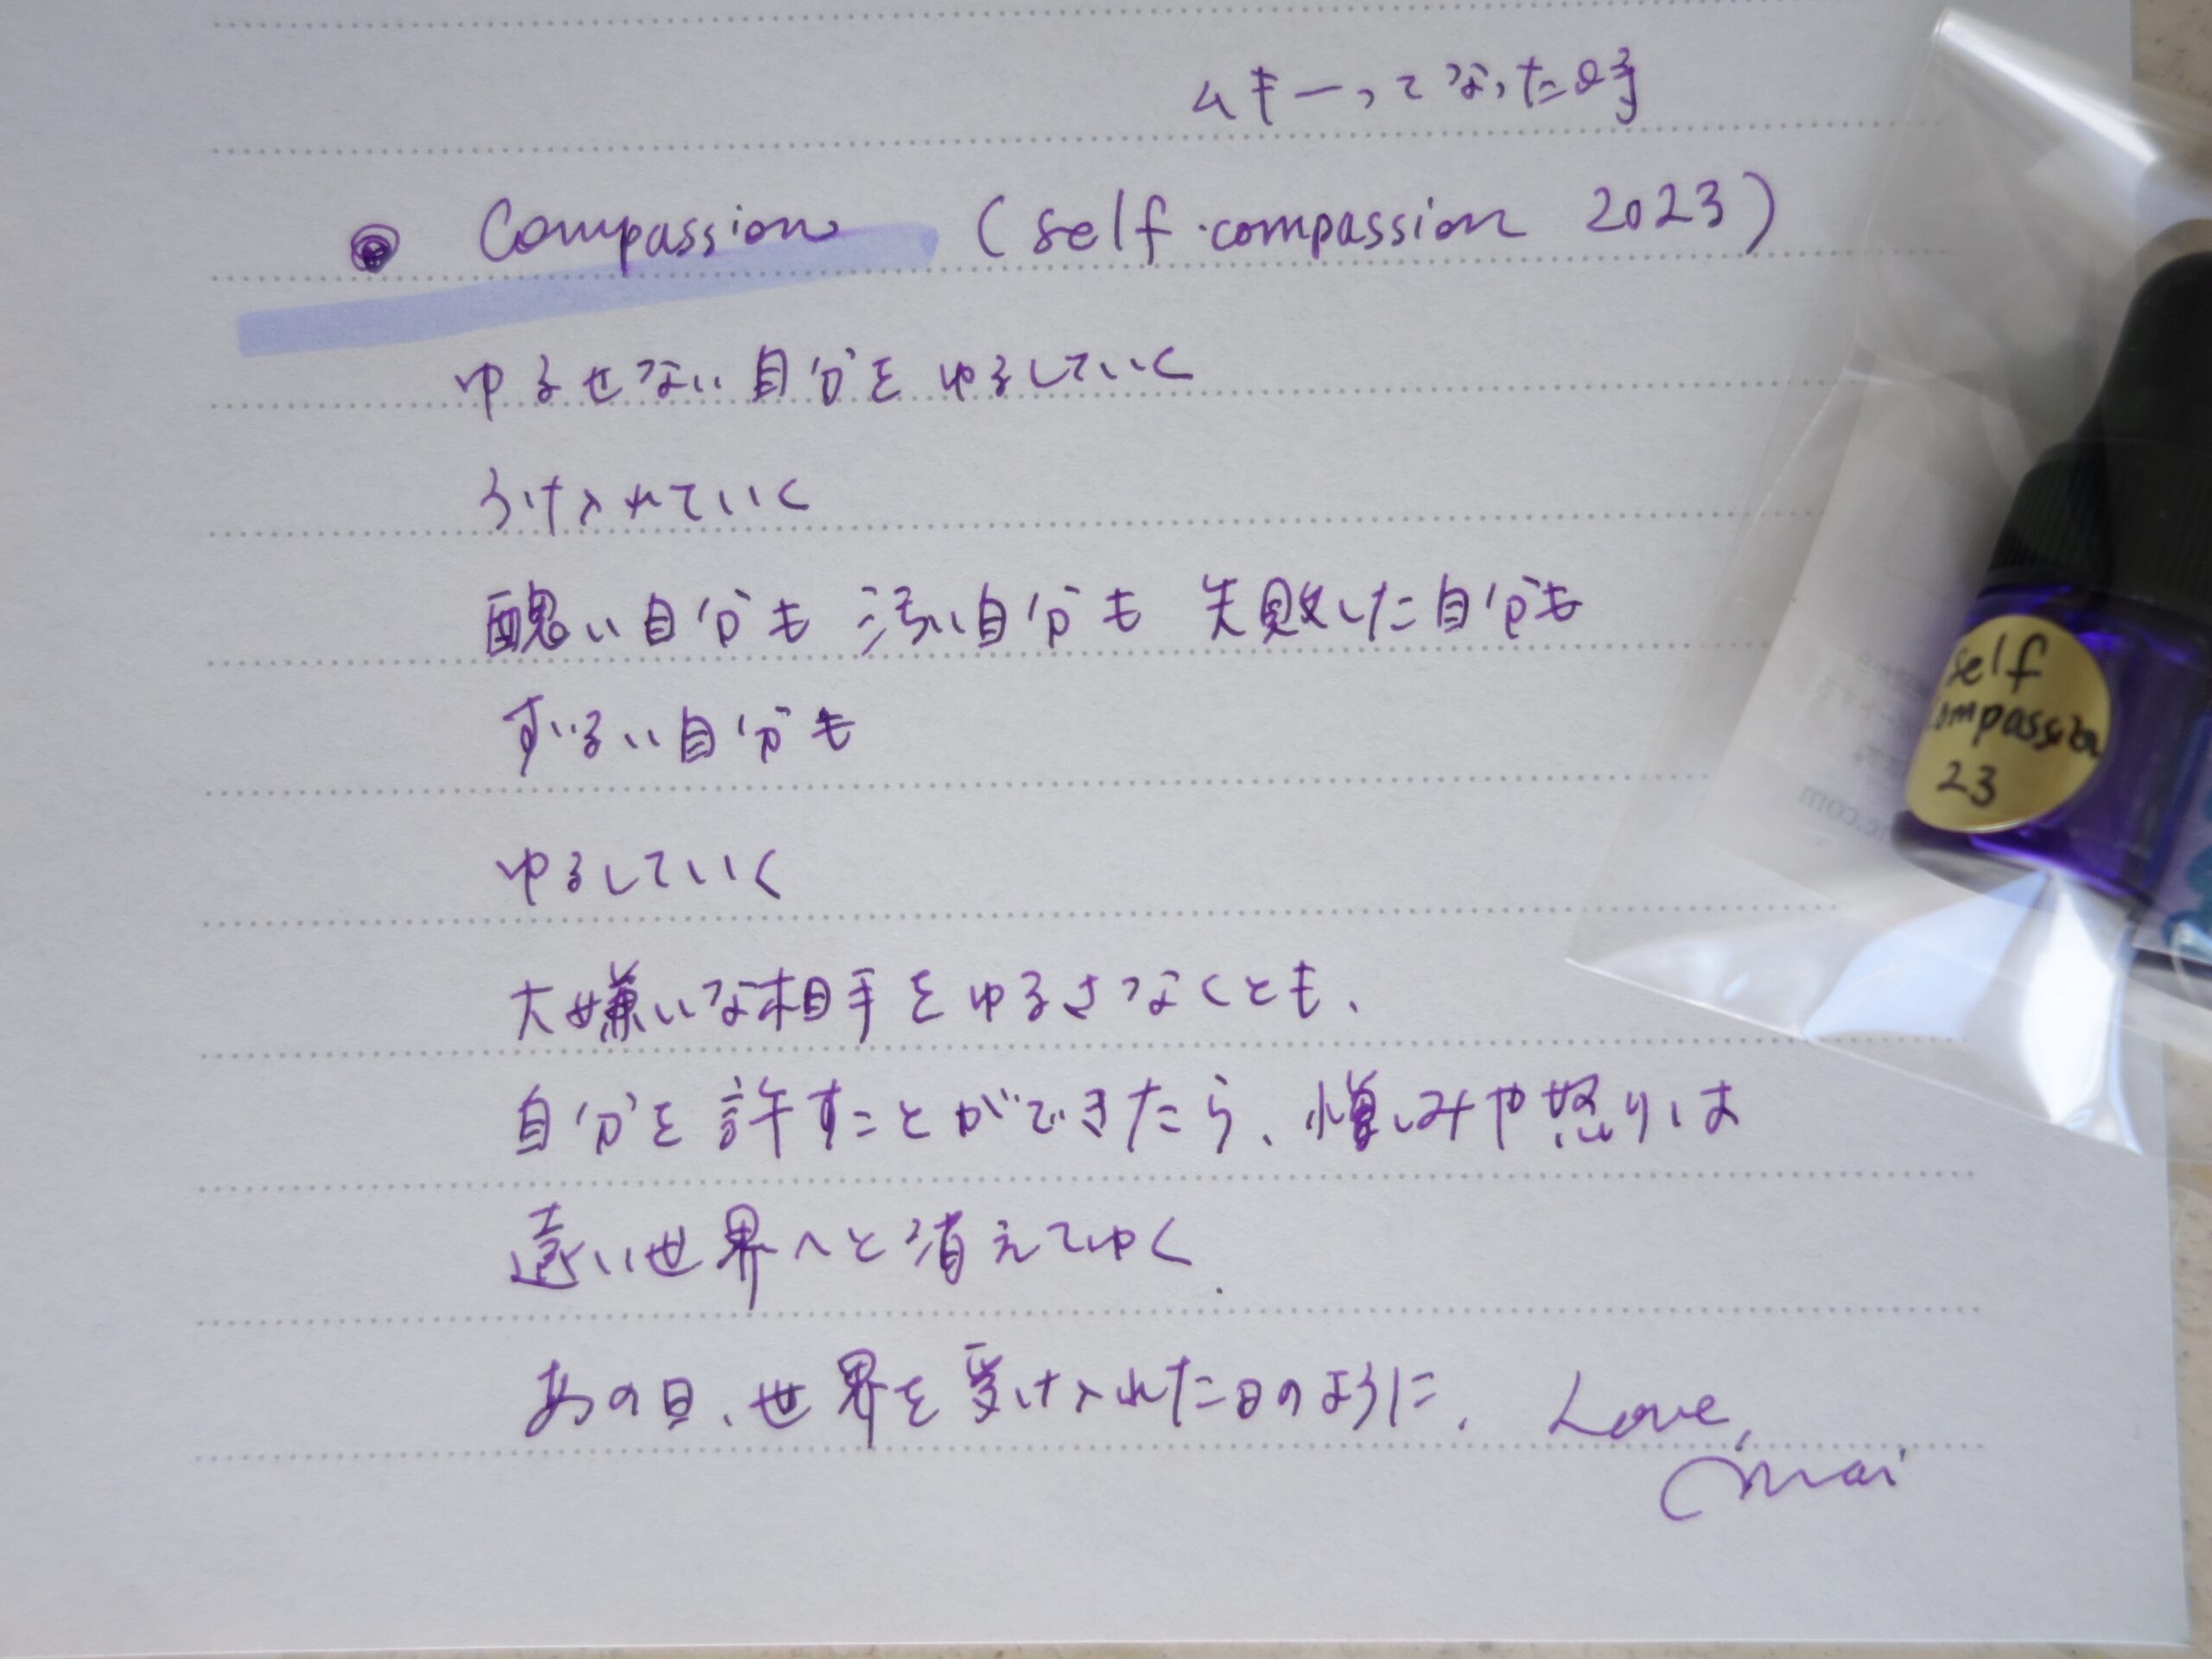 ムキーってなった時
Compassion (self-compassion 2023)
ゆるせない自分を ゆるしていく
うけ入れていく
醜い自分も 汚い自分も 失敗した自分も
ずるい自分も
ゆるしていく
大嫌いな相手をゆるさなくとも、
自分を許すことができたら、憎しみや怒りは
遠い世界へと消えてゆく.
あの日、世界を受け入れた日のように. Love,
Mai
self
compassion
23